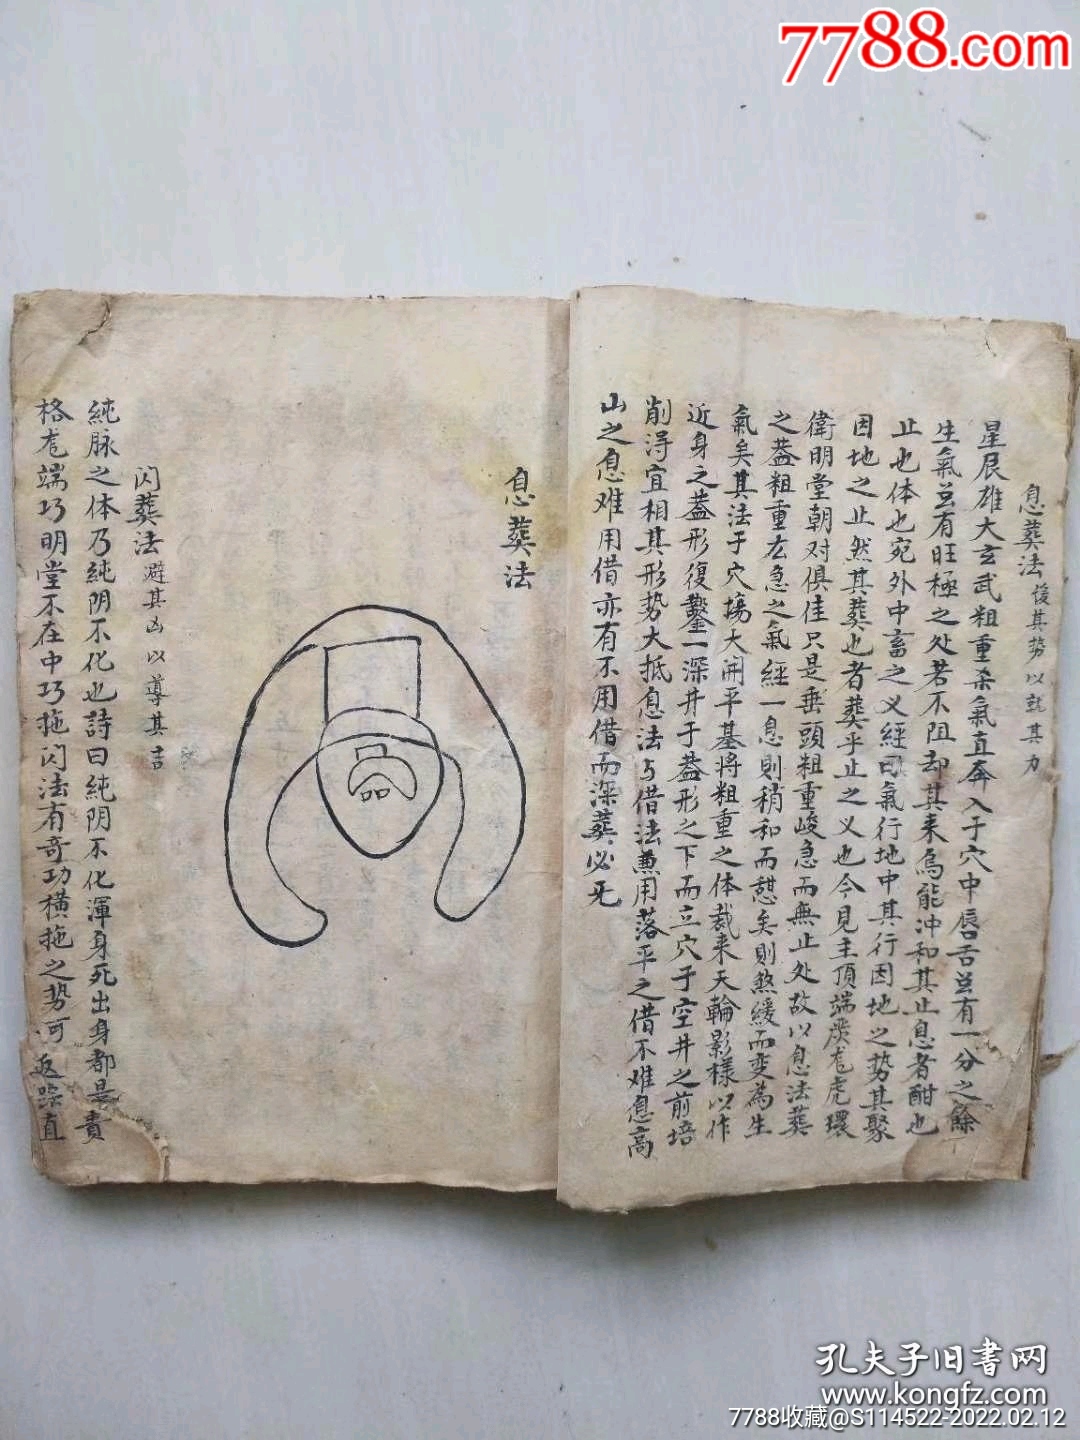 7788.com
息葬法 後其势以就其力
星辰雄大玄武粗重杀氣直奔入于穴中唇舌岂有一分之餘
生氣岂有旺極之处若不阻却其来烏能冲和其止息者酣也
止也体也宛外中畜之义經曰氣行地中其行因地之势其聚
因地之止然其葬也者葬乎止之义也今見主頂端庄龙虎環
衛明堂朝对俱佳只是垂頭粗重峻急而無止处故以息法葬
之葢粗重玄急之氣經一息則稍和而甜矣則煞緩而变為生
氣矣其法于穴塲大開平基将粗重之体裁来天輪影樣以作
近身之葢形復鑿一深井于葢形之下而立穴于空井之前培
削得宜相其形势大抵息法与借法兼用落平之借不难息高
山之息难用借亦有不用借而深葬必死
息葬法
闪葬法 避其凶以導其吉
純脉之体乃純阴不化也詩曰純阴不化渾身死出身都是貴
格龙端巧明堂不在中巧拖闪法有奇功横拖之势可返踪直
孔夫子旧书网
www.kongfz.com
7788收藏@S114522-2022.02.12